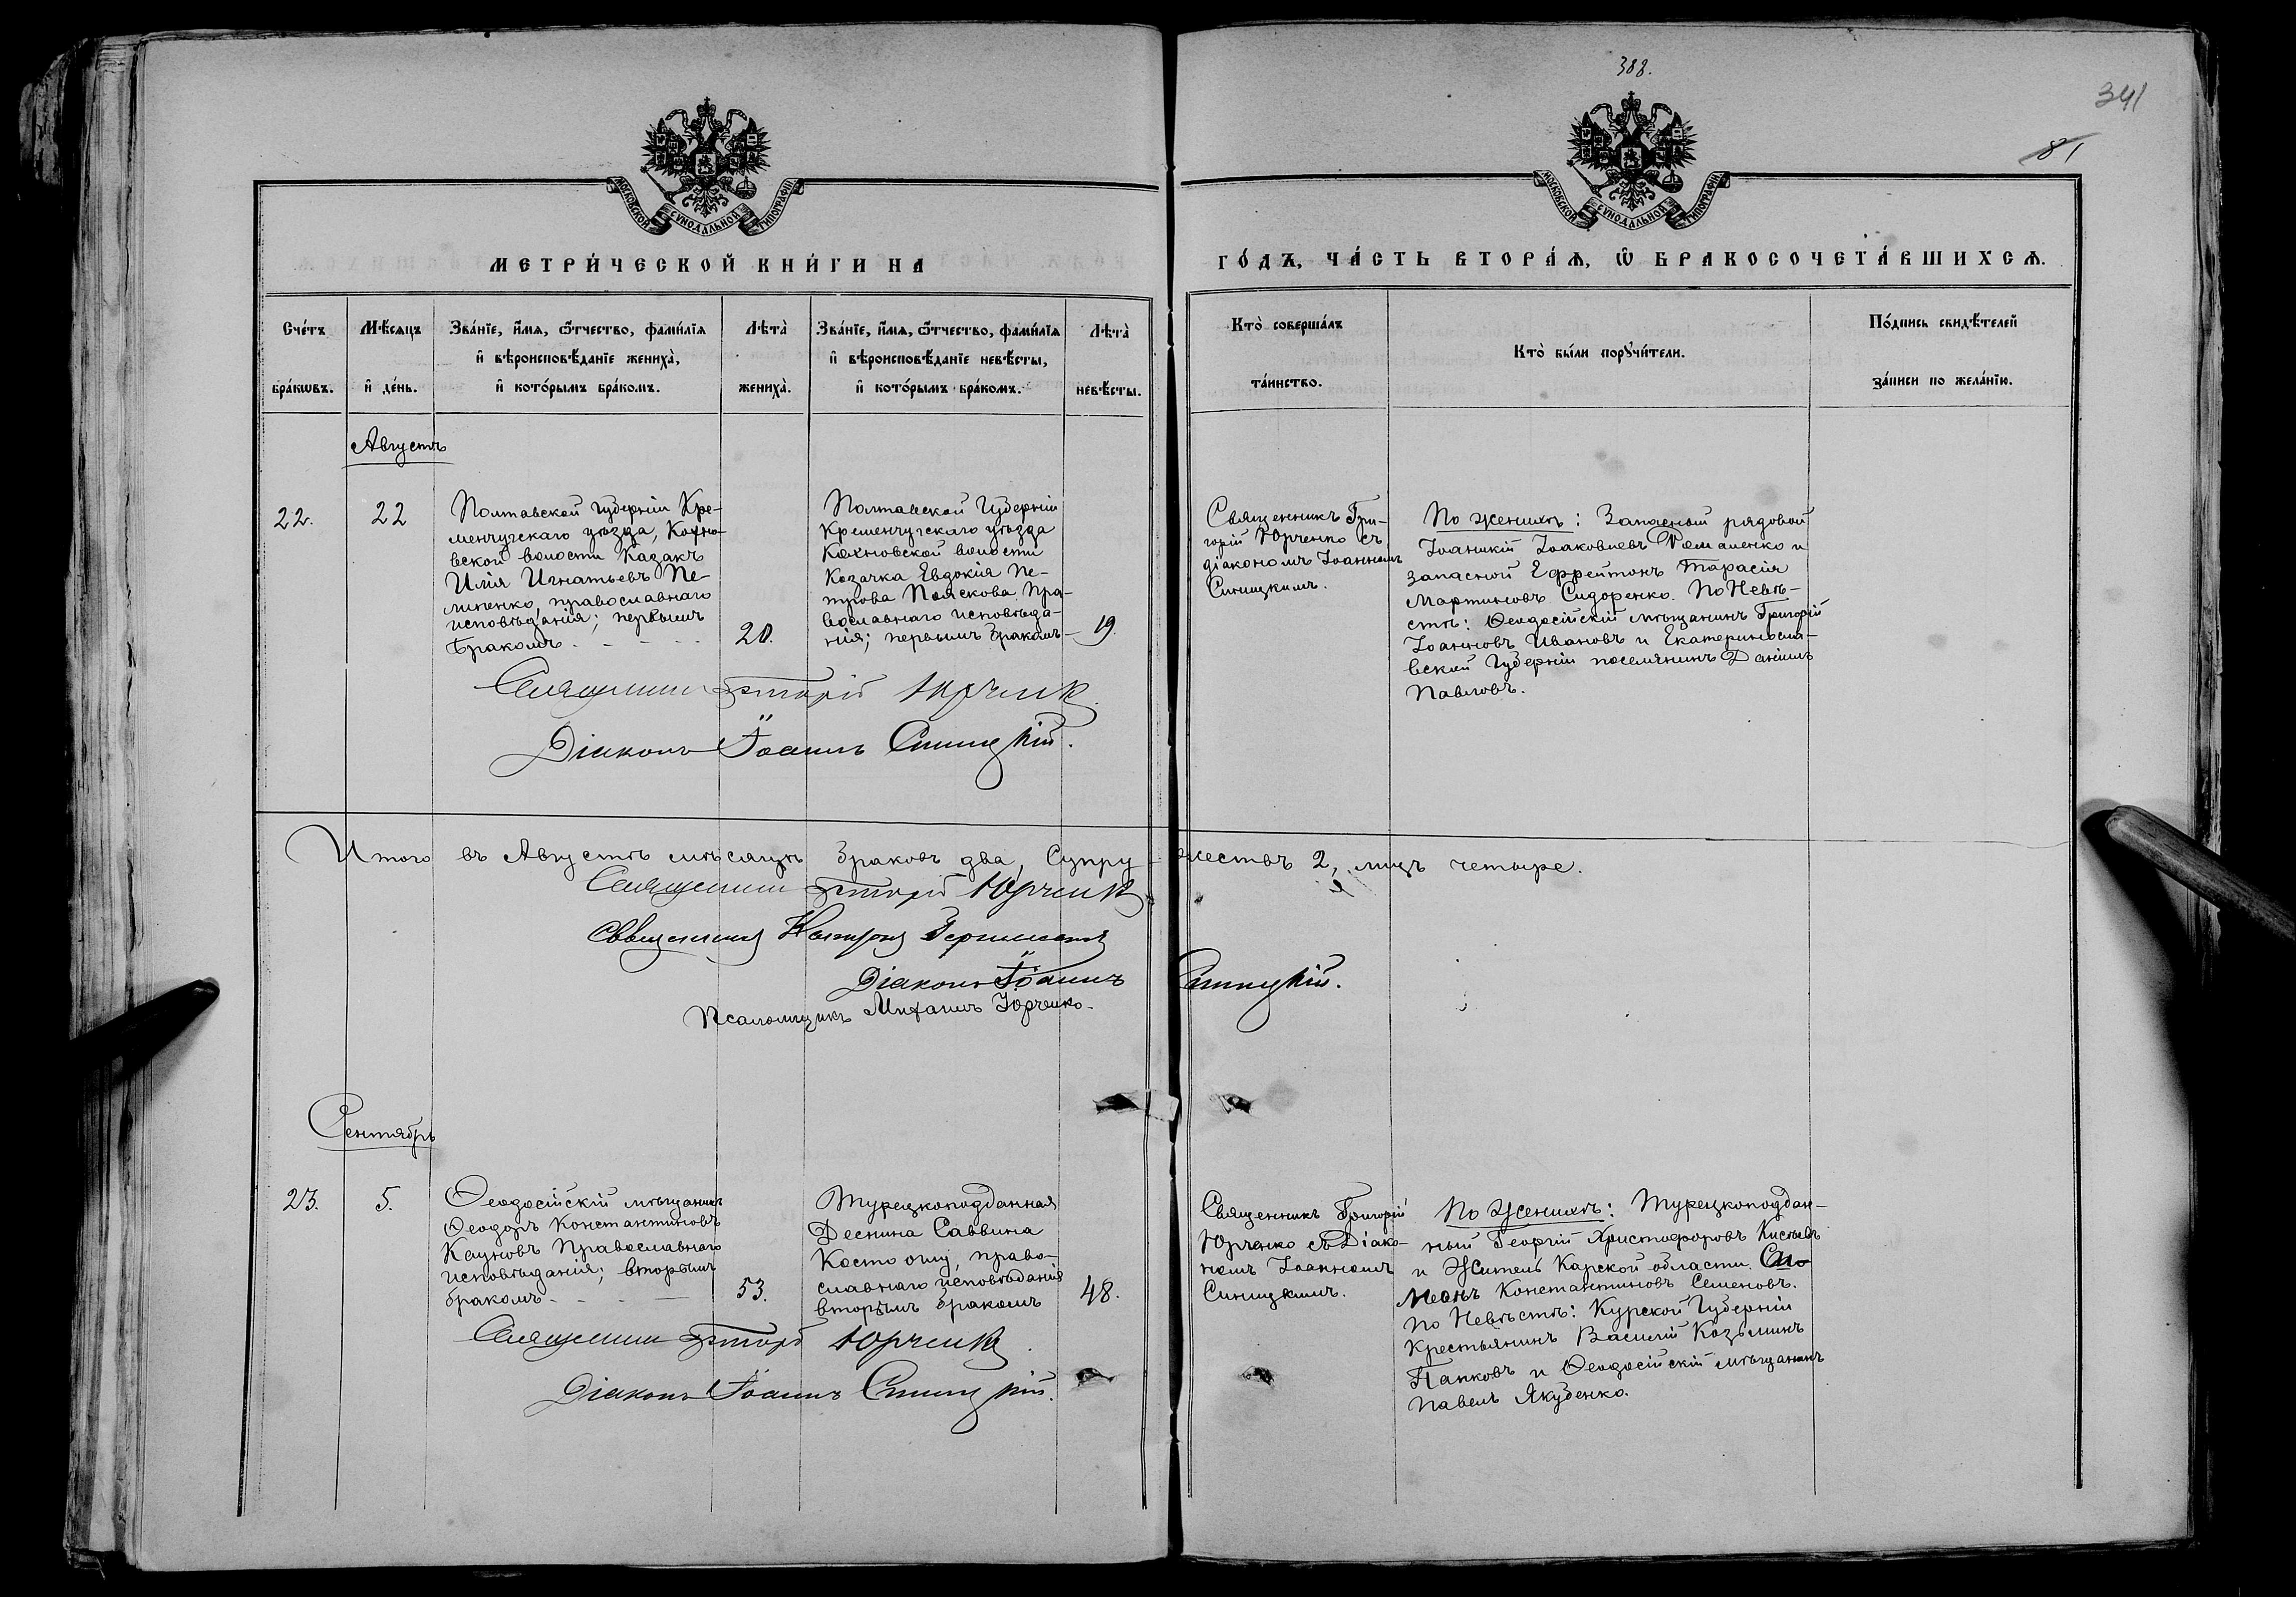 388.
341
81
МОСКОВСКОЙ СѴНОДАЛЬНОЙ ТИПОГРАФІИ
МОСКОВСКОЙ СѴНОДАЛЬНОЙ ТИПОГРАФІИ
МЕТРИ́ЧЕСКОЙ КНИ́ГИ НА
ГО́ДЪ, ЧА́СТЬ ВТОРА́Ѧ, Ѽ БРАКОСОЧЕТА́ВШИХСѦ.
Сче́тъ бра́кѡвъ.
Мѣ́сяцъ и҆ де́нь.
Зва́нїе, и҆́мя, ѻ҆́тчество, фами́лїя
и҆ вѣроисповѣ́данїе жениха̀,
и҆ кото́рымъ бра́комъ.
Лѣта̀ жениха̀.
Зва́нїе, и҆́мя, ѻ҆́тчество, фами́лїя
и҆ вѣроисповѣ́данїе невѣ́сты,
и҆ кото́рымъ бра́комъ.
Лѣта̀ невѣ́сты.
Кто̀ соверша́лъ
та́инство.
Кто̀ бы́ли порꙋчи́тели.
По́дпись свидѣ́телей
за́писи по жела́нїю.
Августъ
22.
22
Полтавской Губерніи Кре-
менчугскаго уѣзда, Кохно-
вской волости Казакъ
Илія Игнатьевъ Пе-
липенко, православнаго
исповѣданія; первымъ
бракомъ.
20.
Полтавской Губерніи
Кременчугскаго уѣзда
Кохновской волости
Козачка Евдокія Пе-
трова Пояскова Пра-
вославнаго исповѣда-
нія; первымъ бракомъ
19.
Священникъ Гри-
горій Юрченко съ
діакономъ Іоанномъ
Синицкимъ.
По женихѣ: Запасный рядовой
Іоаникій Іоаковлевъ Романенко и
запасной Ефрейторъ Тарасій
Мартиновъ Сидоренко. По Невѣ-
стѣ: Ѳеодосійскій мѣщанинъ Григорій
Іоанновъ Ивановъ и Екатериносла-
вской Губерніи поселянинъ Даніилъ
Павловъ.
Священникъ Григорій Юрченко.
Діаконъ Іоаннъ Синицкій.
Итого въ Августѣ мѣсяцѣ браковъ два, Супружествъ 2, лицъ четыре.
Священникъ Григорій Юрченко
Священникъ
Діаконъ Іоаннъ Синицкій.
Псаломщикъ Михаилъ Юрченко.
Сентябрь
23.
5.
Ѳеодосійскій мѣщанинъ
Ѳеодоръ Константиновъ
Кауновъ Православнаго
исповѣданія; вторымъ
бракомъ.
53.
Турецкоподданная
Деспина Саввина
Костоглу, право-
славнаго исповѣданія
вторымъ бракомъ
48.
Священникъ Григорій
Юрченко съ Діако-
номъ Іоанномъ
Синицкимъ.
По Женихѣ: Турецкоподдан-
ный Георгій Христофоровъ
и Житель Карской области Си-
меонъ Константиновъ Семеновъ.
По Невѣстѣ: Курской Губерніи
Крестьянинъ Василій Козьминъ
Папковъ и Ѳеодосійскій мѣщанинъ
Павелъ Якубенко.
Священникъ Григорій Юрченко.
Діаконъ Іоаннъ Синицкій.